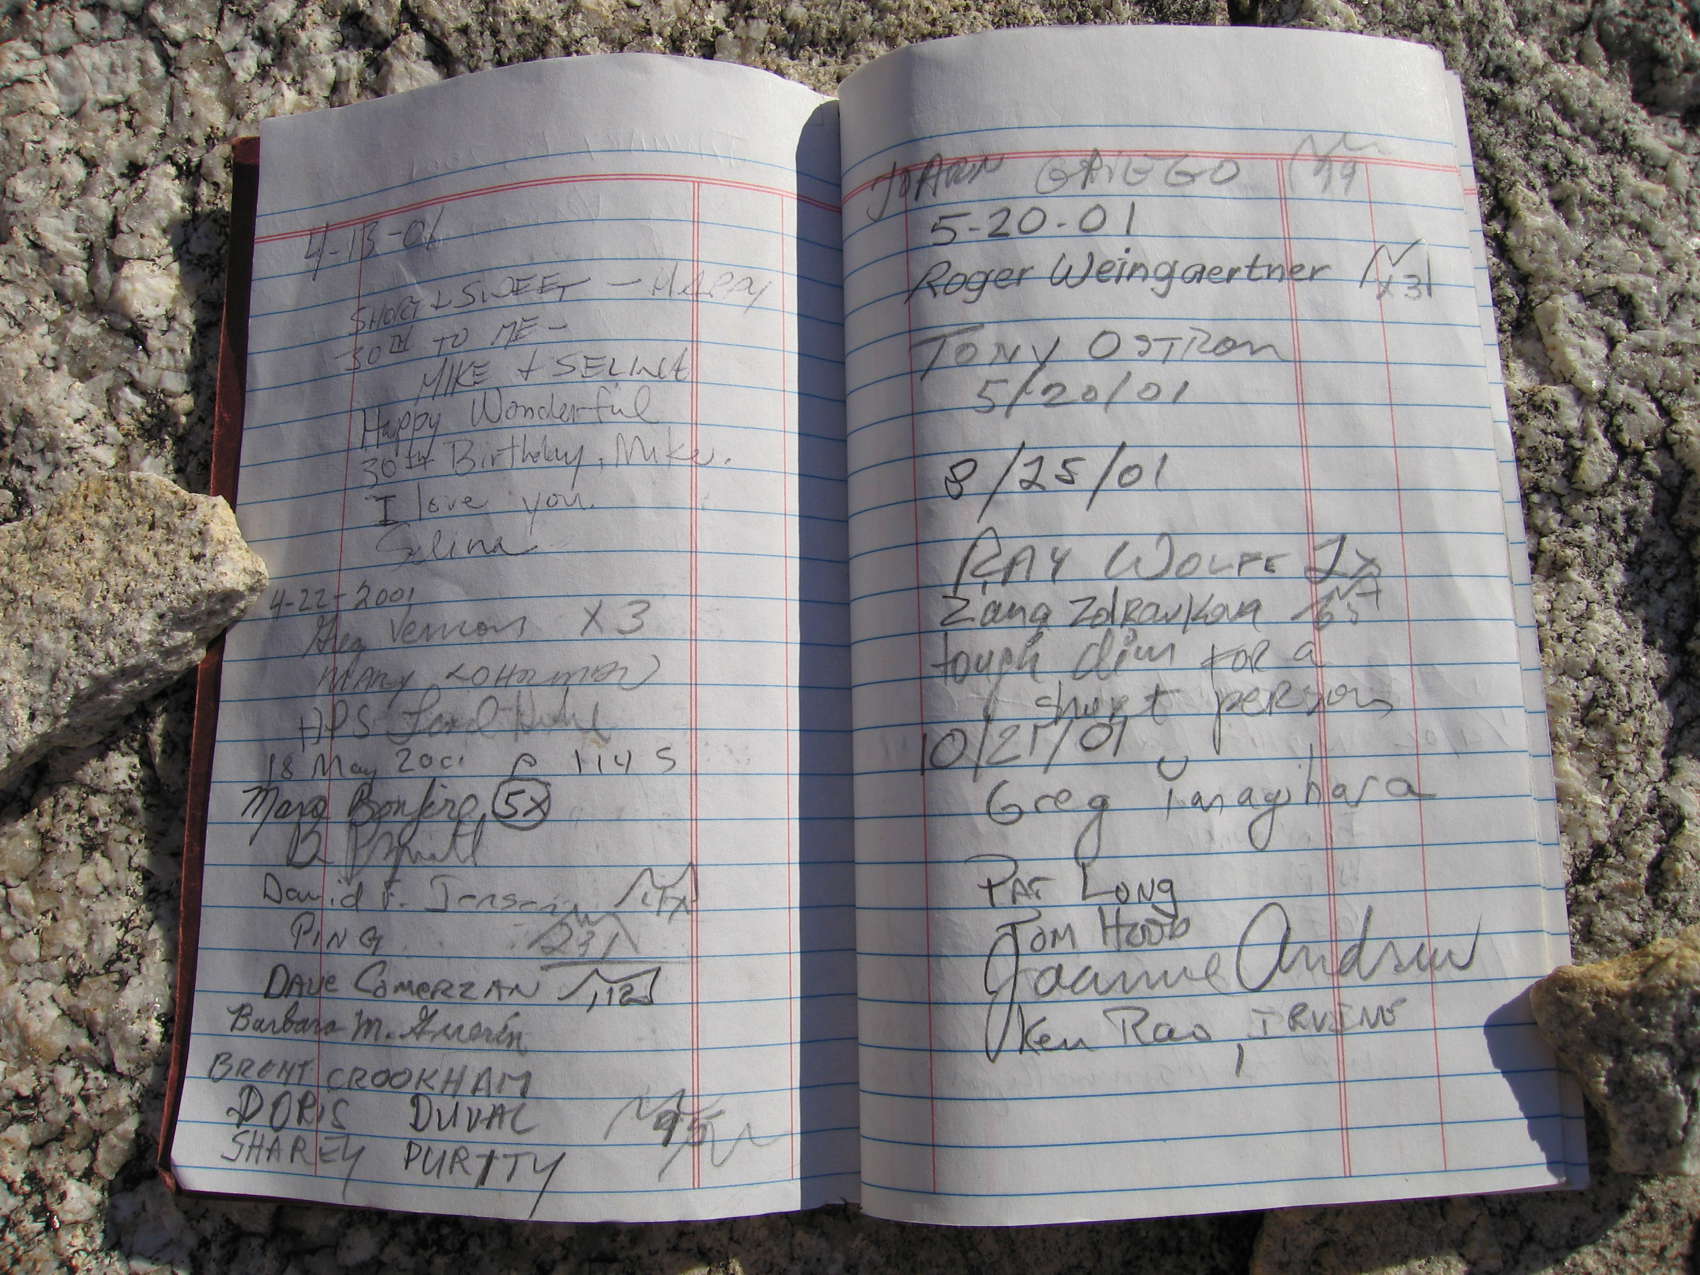 4-13-01
SHORT & SWEET - HAPPY
30TH TO ME -
MIKE + SELINA
Happy Wonderful
30th Birthday, Mike.
I love you.
Selina
4-22-2001
Greg Vernon X3
MARY
HPS
18 May 2001
5X
David F. Jensen
PING 291
DAVE COMERZAN 112
Barbara M. Guerin
BRENT CROOKHAM
DORIS DUVAL 95
SHAREY PURTTY
JOANN GRIEGO 99
5-20-01
Roger Weingaertner x31
TONY OSTROM
5/20/01
8/25/01
RAY WOLFE 2x
Zdravkova
tough climb FOR a
short person
10/21/01
Greg Yanagihara
PAT LONG
TOM HOOD
Joanne Andrew
Ken Rao, IRVINE